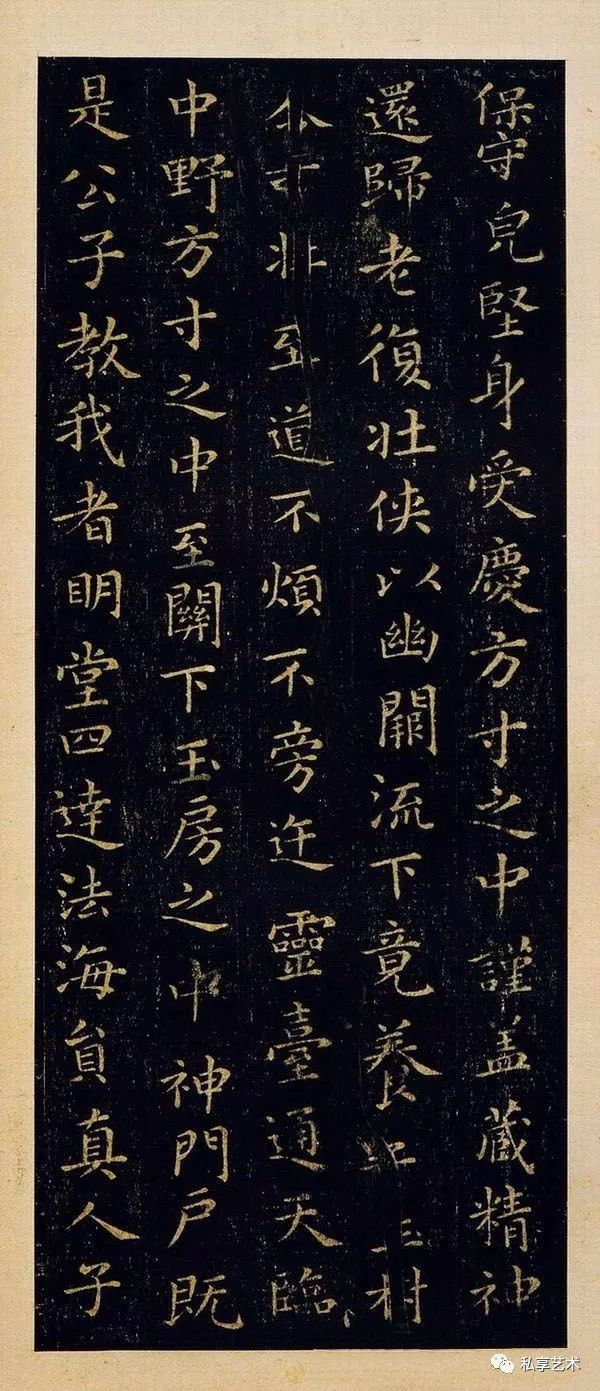 保守皃堅身受慶方寸之中謹盖藏精神
還歸老復壯俠以幽闕流下竟養村
壯至道不煩不旁迕靈臺通天臨
中野方寸之中至關下玉房之中神門户既
是公子教我者明堂四達法海員真人子
私享艺术